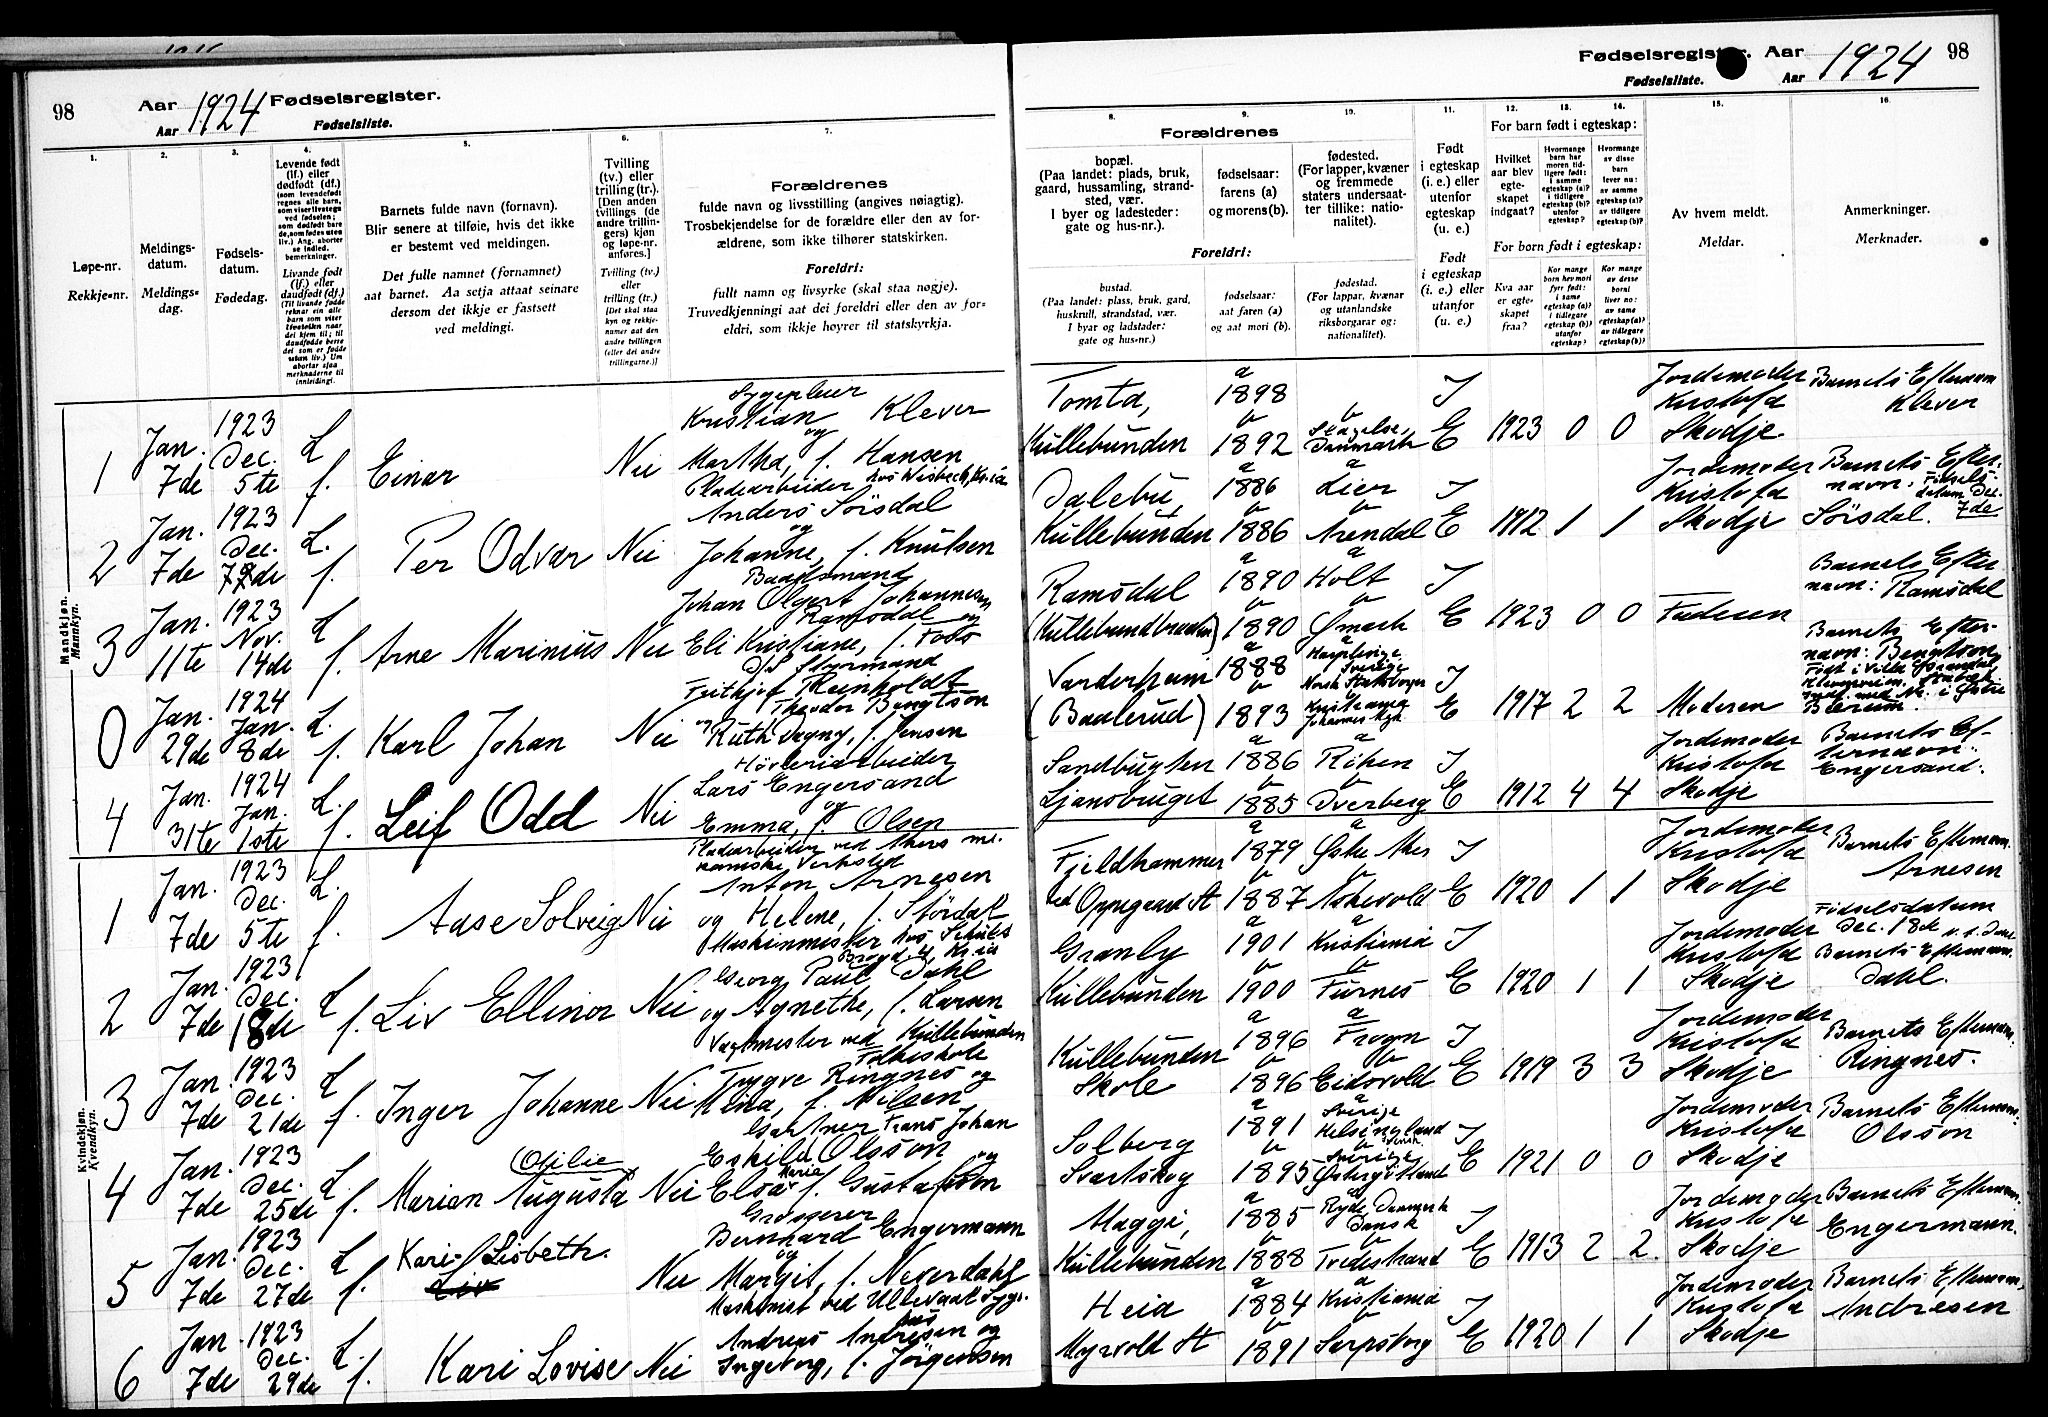 98
Aar 1924 Fødselsregister.
Aar Fødselsliste.
1.
2.
3.
4.
5.
6.
7.
Løpe-nr.
Rekkje=nr.
Meldings-
datum.
Meldings=
dag.
Fødsels-
datum.
Fødedag.
Levende født
(lf.) eller
dødfødt (df.)
Livande født
(lf.) eller
daudfødt (df.)
Barnets fulde navn (fornavn).
Blir senere at tilføie, hvis det ikke
er bestemt ved meldingen.
Det fulle namnet (fornamnet)
aat barnet. Aa setja attaat seinare
dersom det ikkje er fastsett
ved meldingi.
Tvilling
(tv.) eller
trilling (tr.).
[Den anden
tvillings (de
andre trillin-
gers) kjøn
og løpe-nr.
anføres.]
Tvilling (tv.)
eller
trilling (tr.)
[Det skal staa
kyn og rekkje-
numer aat den
andre tvillingen
(eller dei andre
trillingarne.)]
Forældrenes
fulde navn og livsstilling (angives nøiagtig).
Trosbekjendelse for de forældre eller den av for-
ældrene, som ikke tilhører statskirken.
Foreldri:
fullt namn og livsyrke (skal staa nøgje).
Truvedkjenningi aat dei foreldri eller den av for=
eldri, som ikkje høyrer til statskyrkja.
Mandkjøn.
Mannkyn.
1 Jan. 7de 1923 Dec. 5te L. f. Einar Nei
Sygepleier
Kristian Klever
og
Martha, f. Hansen
2 Jan. 7de 1923 Dec. L. f. Per Odvar Nei
Pladearbeider hos
Anders Sörsdal
og
Johanne, f. Knutsen
3 Jan. 11te 1923 Nov. 14de L f. Arne Marinius Nei
Baadsmand
Johan Olgert Johannesen
Ramsdal og
Eli Kristiane, f. Foss
0 Jan. 29de 1924 Jan. 8de L. f. Karl Johan Nei
Styrmand
Frithjof Reinholdt
Theodor Bengtson
og Ruth Dagny, f. Jensen
4 Jan. 31te 1924 Jan. 1ste L. f. Leif Odd Nei
Lars Engersand
og
Emma, f. Olsen
Kvindekjøn.
Kvendkyn.
1 Jan. 7de 1923 Dec. 5te L. f. Aase Solveig Nei
Pladearbeider ved Akers me-
kaniske Verksted
Anton Arnesen
og Helene, f. Stördal
2 Jan. 7de 1923 Dec. 18de L f. Liv Ellinor Nei
Maskinmester hos Schous
Bryg.
Georg Paul Dahl
og Agnethe, f. Larsen
3 Jan. 7de 1923 Dec. 21de L f. Inger Johanne Nei
Vagtmester ved Kullebunden
Folkeskole
Trygve Ringnes og
f. Nilsen
4 Jan. 7de 1923 Dec. 25de L. f. Marian Augusta Nei
Otilie
Gartner Frans Johan
Eskild Olsson og
Elsa Maria f. Gustafson
5 Jan. 7de 1923 Dec. 27de L f. Kari Lisbeth. Nei
Liv
Grosserer
Bernhard Engermann
og
Margit, f. Neverdahl
6 Jan. 7de 1923 Dec. 29de L. f. Kari Lovise Nei
Maskinist ved Ullevaal Syge-
hus
Andreas Andresen og
Ingeborg, f. Jörgensen
Fødselsregister. Aar 1924 98
Fødselsliste. Aar
8.
9.
10.
11.
12.
13.
14.
15.
16.
Forældrenes
bopæl.
(Paa landet: plads, bruk,
gaard, hussamling, strand-
sted, vær.
I byer og ladesteder:
gate og hus-nr.).
fødselsaar:
farens (a)
og morens (b).
fødested.
(For lapper, kvæner
og fremmede
staters undersaat-
ter tillike: natio-
nalitet).
Foreldri:
bustad.
(Paa landet: plass, bruk, gard,
huskrull, strandstad, vær.
I byar og ladstader:
gate og hus=nr.)
fødselsaar:
aat faren (a)
og aat mori (b).
fødestad.
(For lappar, kvænar
og utanlandske
riksborgarar og:
nationalitet).
Født
i egteskap
(i. e.) eller
utenfor
egteskap
(u. e.)
Født
i egteskap
(i. e.) eller
utanfor
(u. e.)
For barn født i egteskap:
Hvilket
aar blev
egte-
skapet
indgaat?
Hvormange
barn har
moren tid-
ligere født:
i samme
egteskap (a)?
i tidligere
egteskap (b)?
utenfor
egteskap?
Hvormange
av disse
barn
lever nu:
av samme
egteskap (a)?
av tidligere
egteskap (b)?
For born født i egteskap:
Kva aar
er egte-
skapet
fraa?
Kor mange
born hev mori
fyrr født:
i same
egteskap (a)?
i tidlegare
egteskap (b)?
utanfor
egteskap?
Kor mange
av desse
borni
liver no:
av same
egteskap (a)?
av tidlegare
egteskap (b)?
Av hvem meldt.
Meldar.
Anmerkninger.
Merknader.
Tomta, Kullebunden a 1898 b 1892 b Danmark I E 1923 0 0 Jordemoder Kristofa Skodje
Barnets Efternavn
Klever
Dalebu, Kullebunden a 1886 b 1886 a Lier b Arendal I E 1912 1 1 Jordemoder Kristofa Skodje
Barnets Efter-
navn: Sörsdal. Födsels-
datum Dec.
7de
Ramsdal (Kullebundbraaten) a 1890 b 1890 a Holt b I E 1923 0 0 Faderen
Barnets Efter-
navn: Ramsdal
Varderheim (Baalerud) a 1888 b 1893 Sverige Norsk Statsborger b Kristiania I E 1917 2 2 Moderen
Barnets Efter-
navn: Bengtson
Sandbugten Ljansbruget a 1886 b 1885 a Röken b I E 1912 4 4 Jordemoder Kristofa Skodje
Barnets Ef-
ternavn:
Engersand.
Fjeldhammer ved Oppegaard St a 1879 b 1887 a Östre Aker b I E 1920 1 1 Jordemoder Kristofa Skodje
Barnets Efternavn.
Arnesen
Granly Kullebunden a 1901 b 1900 a Kristiania b Furnes I E 1920 1 1 Jordemoder Kristofa Skodje
Födselsdatum
Dec. 18de
Barnets Efternavn.
Dahl.
Kullebunden Skole a 1896 b 1896 a Frogn b Eidsvold I E 1919 3 3 Jordemoder Kristofa Skodje
Barnets Efternavn:
Ringnes.
Solberg Svartskog a 1891 b 1895 a Sverige Helsingland b Sverige Östergötland I E 1921 0 0 Jordemoder Kristofa Skodje
Barnets Efternavn:
Olsson
Maggi, Kullebunden a 1885 b 1888 a Ryde, Danmark Dansk b Tvedestrand I E 1913 2 2. Jordemoder Kristofa Skodje
Barnets Efternavn.
Engermann.
Heia Myrvold St a 1884 b 1891 a Kristiania b Sarpsborg I E 1920 1 1 Jordemoder Kristofa Skodje
Barnets Efternavn.
Andresen